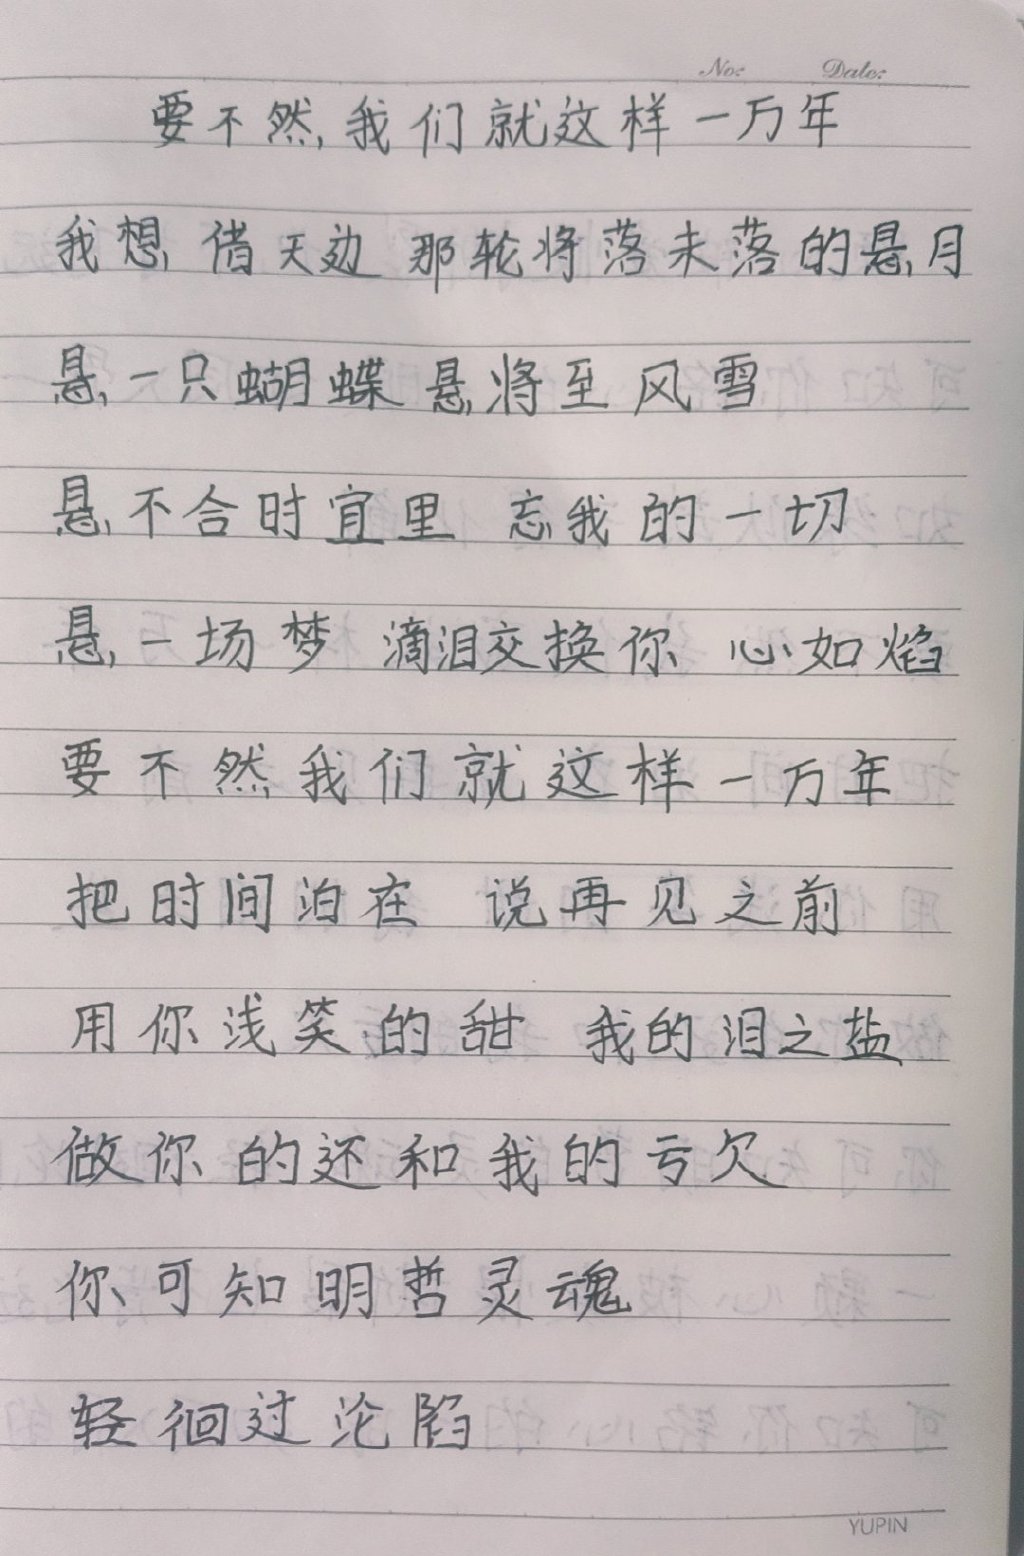 No: Date:
要不然,我们就这样一万年
我想 借天边 那轮将落未落的悬月
悬一只蝴蝶 悬将至风雪
悬不合时宜里 忘我的一切
悬一场梦 滴泪交换你 心如焰
要不然我们就这样一万年
把时间泊在 说再见之前
用你浅笑的甜 我的泪之盐
做你的还和我的亏欠
你可知明哲灵魂
轻徊过沦陷
YUPIN